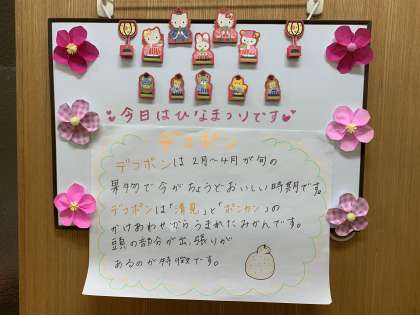 今日はひなまつりです
デコポン
デコポンは2月〜4月が旬の
果物で今がちょうどおいしい時期です。
デコポンは「清見」と「ポンカン」の
かけあわせからうまれたみかんです。
頭の部分が出っ張りが
あるのが特徴です。